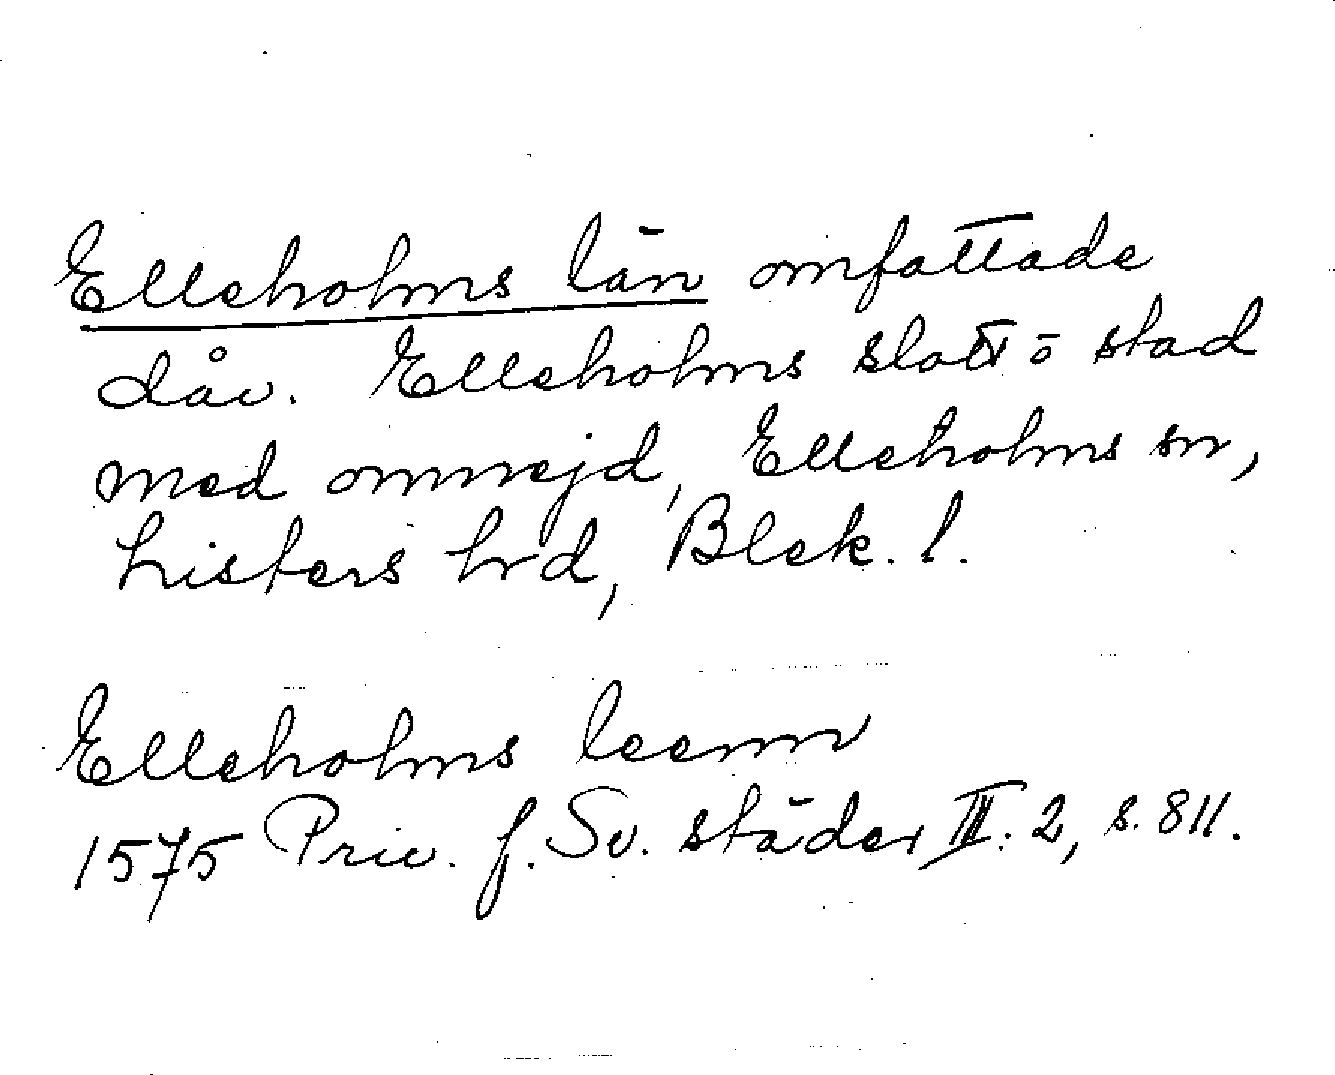 Elleholms län omfattade
dåv. Elleholms slott o stad
med omnejd, Elleholms sn,
Listers hrd, Blek. l.
Elleholms leenn
1575 Priv. f. Sv. städer III: 2, s. 811.